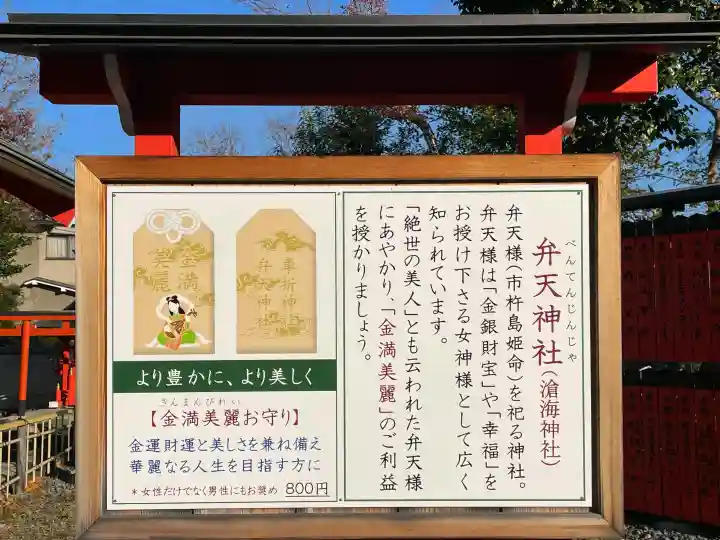 べんてんじんじゃ
弁天神社(滄海神社)
弁天様(市杵島姫命)を祀る神社。
弁天様は「金銀財宝」や「幸福」を
お授け下さる女神様として広く
知られています。
「絶世の美人」とも云われた弁天様
にあやかり、「金満美麗」のご利益
を授かりましょう。
金満
美麗
車折神社
弁天神社
より豊かに、より美しく
きんまんびれい
【金満美麗お守り】
金運財運と美しさを兼ね備え
華麗なる人生を目指す方に
*女性だけでなく男性にもお奨め 800円